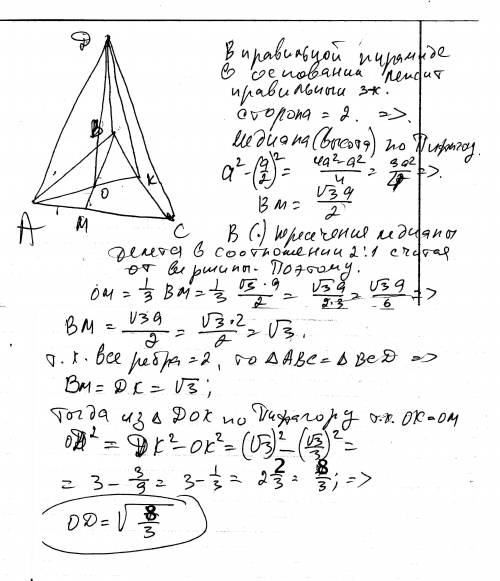 D
В
О
К
А
М
С
В правильной пирамиде
в основании лежит
правильный 3-к.
сторона = 2. =>.
Медиана (высота) по Пифагору.
a² - (a/2)² = (4a² - a²)/4 = 3a²/4 =>.
BM = √3a/2
В (·) пересечения медианы
делятся в соотношении 2:1 считая
от вершины. Поэтому.
OM = 1/3 BM = 1/3 √3·a/2 = √3a/2·3 = √3a/6 =>
BM = √3a/2 = √3·2/2 = √3.
т.к. все ребра = 2, то △ABC = △BCD =>
BM = DK = √3;
Тогда из △DOK по Пифагору т.к. OK = OM
OD² = DK² - OK² = (√3)² - (√3/3)² =
= 3 - 3/9 = 3 - 1/3 = 2 2/3 = 8/3; =>
OD = √8/3